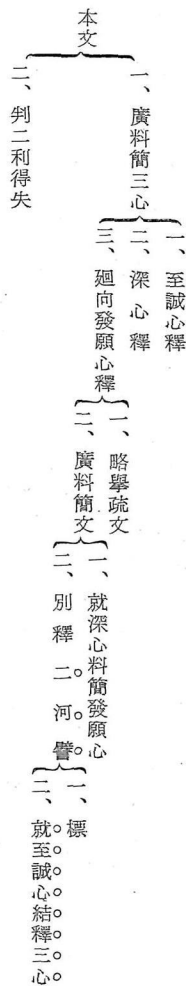 本文
一、廣料簡三心
一、至誠心釋
二、深心釋
三、廻向發願心釋
一、略擧疏文
二、廣料簡文
一、就深心料簡發願心
二、別釋二河譬
一、標
二、就至誠心結釋三心
二、判二利得失